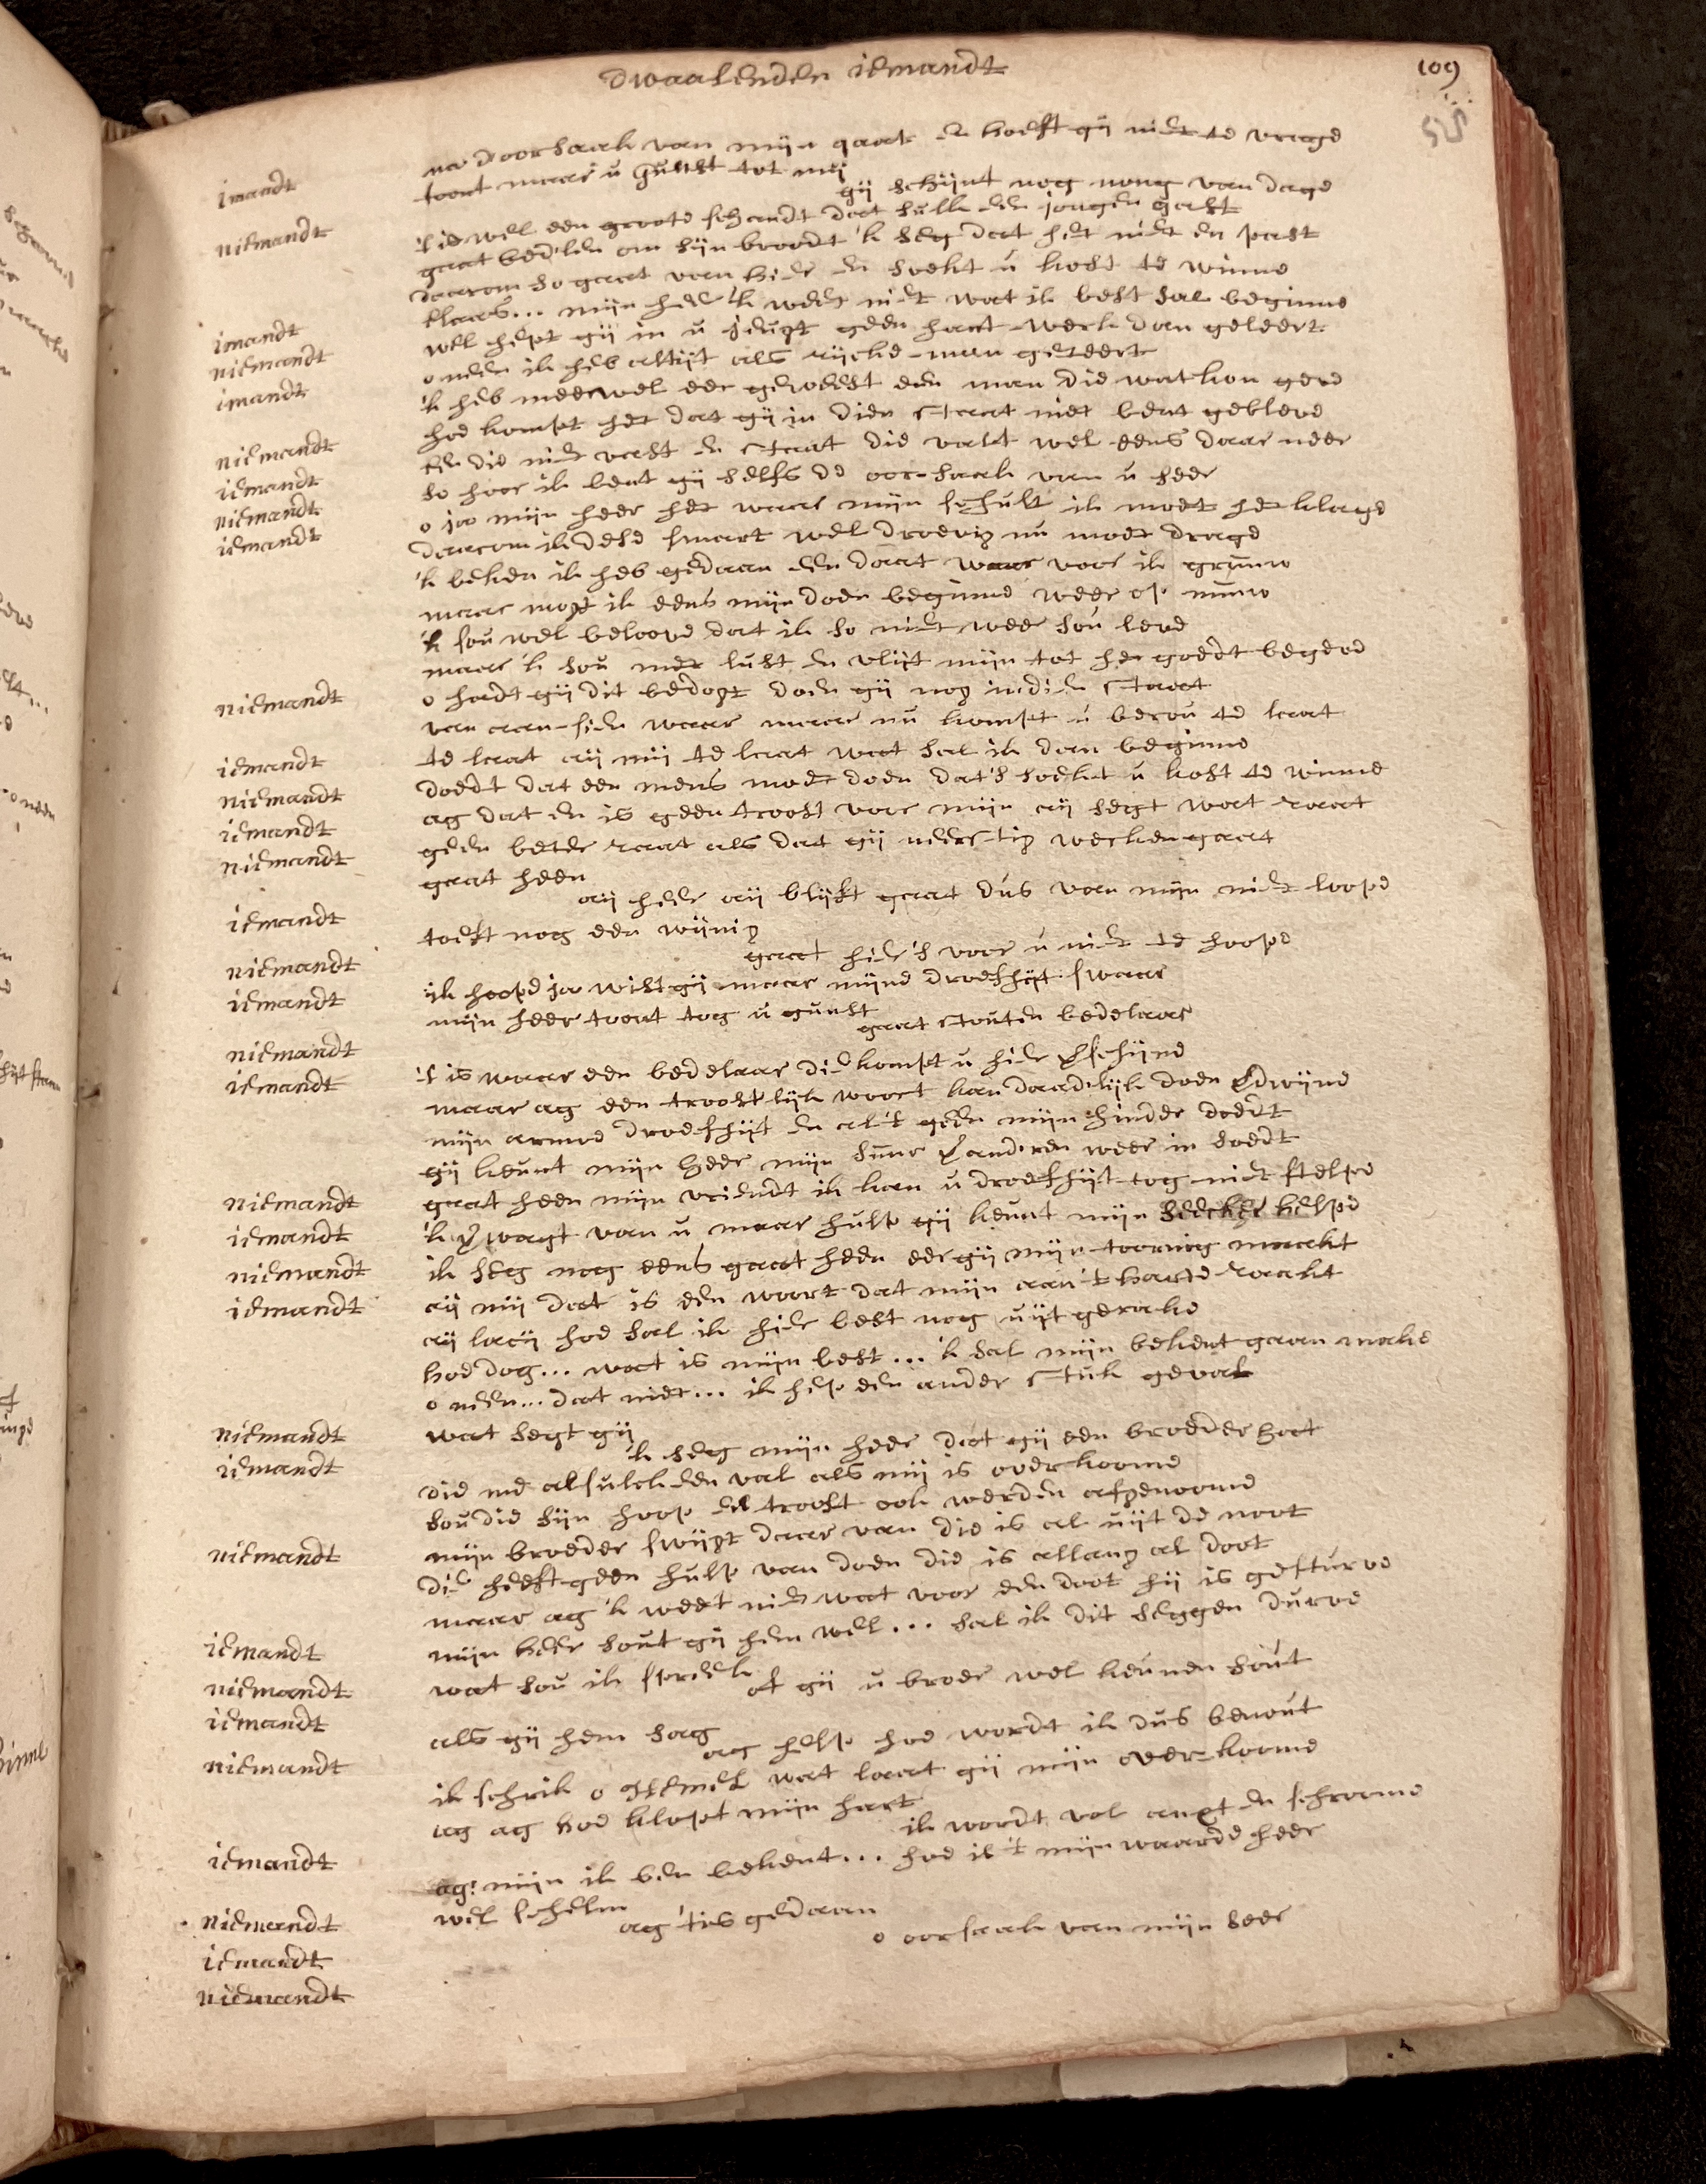 dwaalenden iemandt
109
na d'oorsaak van mijn qaat en hoeft gij niet te vrage
imandt toont maar u gunst tot mij
niemandt gij schijnt nog nong van dage
't is wel een groote schandt dat sulk een jongen gast
gaat bed'len om sijn broodt 'k seg dat het niet en past
daarom so gaat van hier en soekt u kost te winne
imandt Elaas... mijn heer 'k weet niet wat ik best sal beginne
niemandt wel hept gij in u jeugt geen hant-werk dan geleert
imandt o neen ik heb altijt als rijcke-man geteert
'k heb meerwel eer geweest een man die wat kon geve
niemandt hoe kompt het dat gij in dien staat niet bent gebleve
iemandt Een die niet vast en staat die valt wel eens daar neer
niemandt so hoor ik bent gij selfs de oor-saak van u seer
iemandt o ja mijn heer het waar mijn schult ik moet het klage
daarom ik dese smart wel droevig nu moet drage
'k beken ik heb gedaan een daat waar voor ik gruuw
maar mogt ik eens mijn doen beginne weer op nuuw
'k sou wel beloove dat ik so niet weer sou leve
maar 'k sou met lust en vlijt mijn tot het goedt begeve
niemandt o hadt gij dit bedogt doen gij nog indien staat
van aan-sien waar maar nu kompt u berou te laat
iemandt te laat aij mij te laat wat sal ik dan beginne
niemandt doedt dat een mens moet doen dat's soekt u kost te winne
iemandt ag dat en is geen troost voor mijn aij segt wat raat
niemandt geen beter raat als dat gij neerstig werken gaat
gaat heen
iemandt aij heer aij blijft gaat dus van mijn niet loope
toeft nog een wijnig
niemandt gaat hier 's voor u niet te hoope
iemandt ik hoope ja wist gij maar mijne droefhijt swaar
mijn heer toont tog u gunst
niemandt gaat stouten bedelaar
iemandt 't is waar een bedelaar die kompt u hier verschijne
maar ag een troostlijk woort kan daadlijk doen verdwijne
mijn armoe droefhijt en al't geen mijn hinder doedt
gij keunt mijn heer mijn suur veranderen weer in soedt
niemandt gaat heen mijn vriendt ik kan u droefhijt tog niet stelpe
iemandt 'k verwagt van u maar hulp gij keunt mijn seeker helpe
niemandt ik seg nog eens gaat heen eer gij mijn toornig maakt
iemandt aij mij dat is een woort dat mijn aan't harte raakt
aij lacij hoe sal ik hier best nog uijt gerake
hoe dog... wat is mijn best... 'k sal mijn bekent gaan make
o neen... dat niet... ik hep een ander stuk geval
niemandt wat segt gij
iemandt 'k seg mijn heer dat gij een broeder hat
die me alsulck een val als mij is overkoome
sou die sijn hoop en troost ook werden afgenoome
niemandt mijn broeder swijgt daar van die is al uijt de noot
die heeft geen hulp van doen die is allang al doot
maar ag 'k weet niet wat voor een doot hij is gesturve
iemandt mijn heer sout gij hem wel... sal ik dit seggen durve
niemandt wat sou ik spreek
iemandt of gij u broer wel keunen sout
als gij hem sag
niemandt ag help hoe wordt ik dus benout
ik schrik o Hemel wat laat gij mijn over-koome
ag ag hoe klopt mijn hart
iemandt ik wordt vol angt en schroome
ag! mijn ik ben bekent... hoe is 't mijn waarde heer
niemandt wel schelm
iemandt ag 'tis gedaan
niemandt o oorsaak van mijn seer